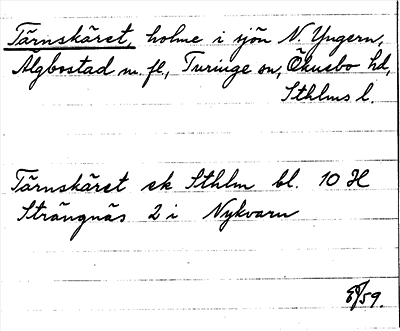 Tärnskäret, holme i sjön N. Yngern,
Algbostad m. fl., Turinge sn, Öknebo hd,
Sthlms l.
Tärnskäret ek Sthlm bl. 10 H
Strängnäs 2 i Nykvarn
8/59.